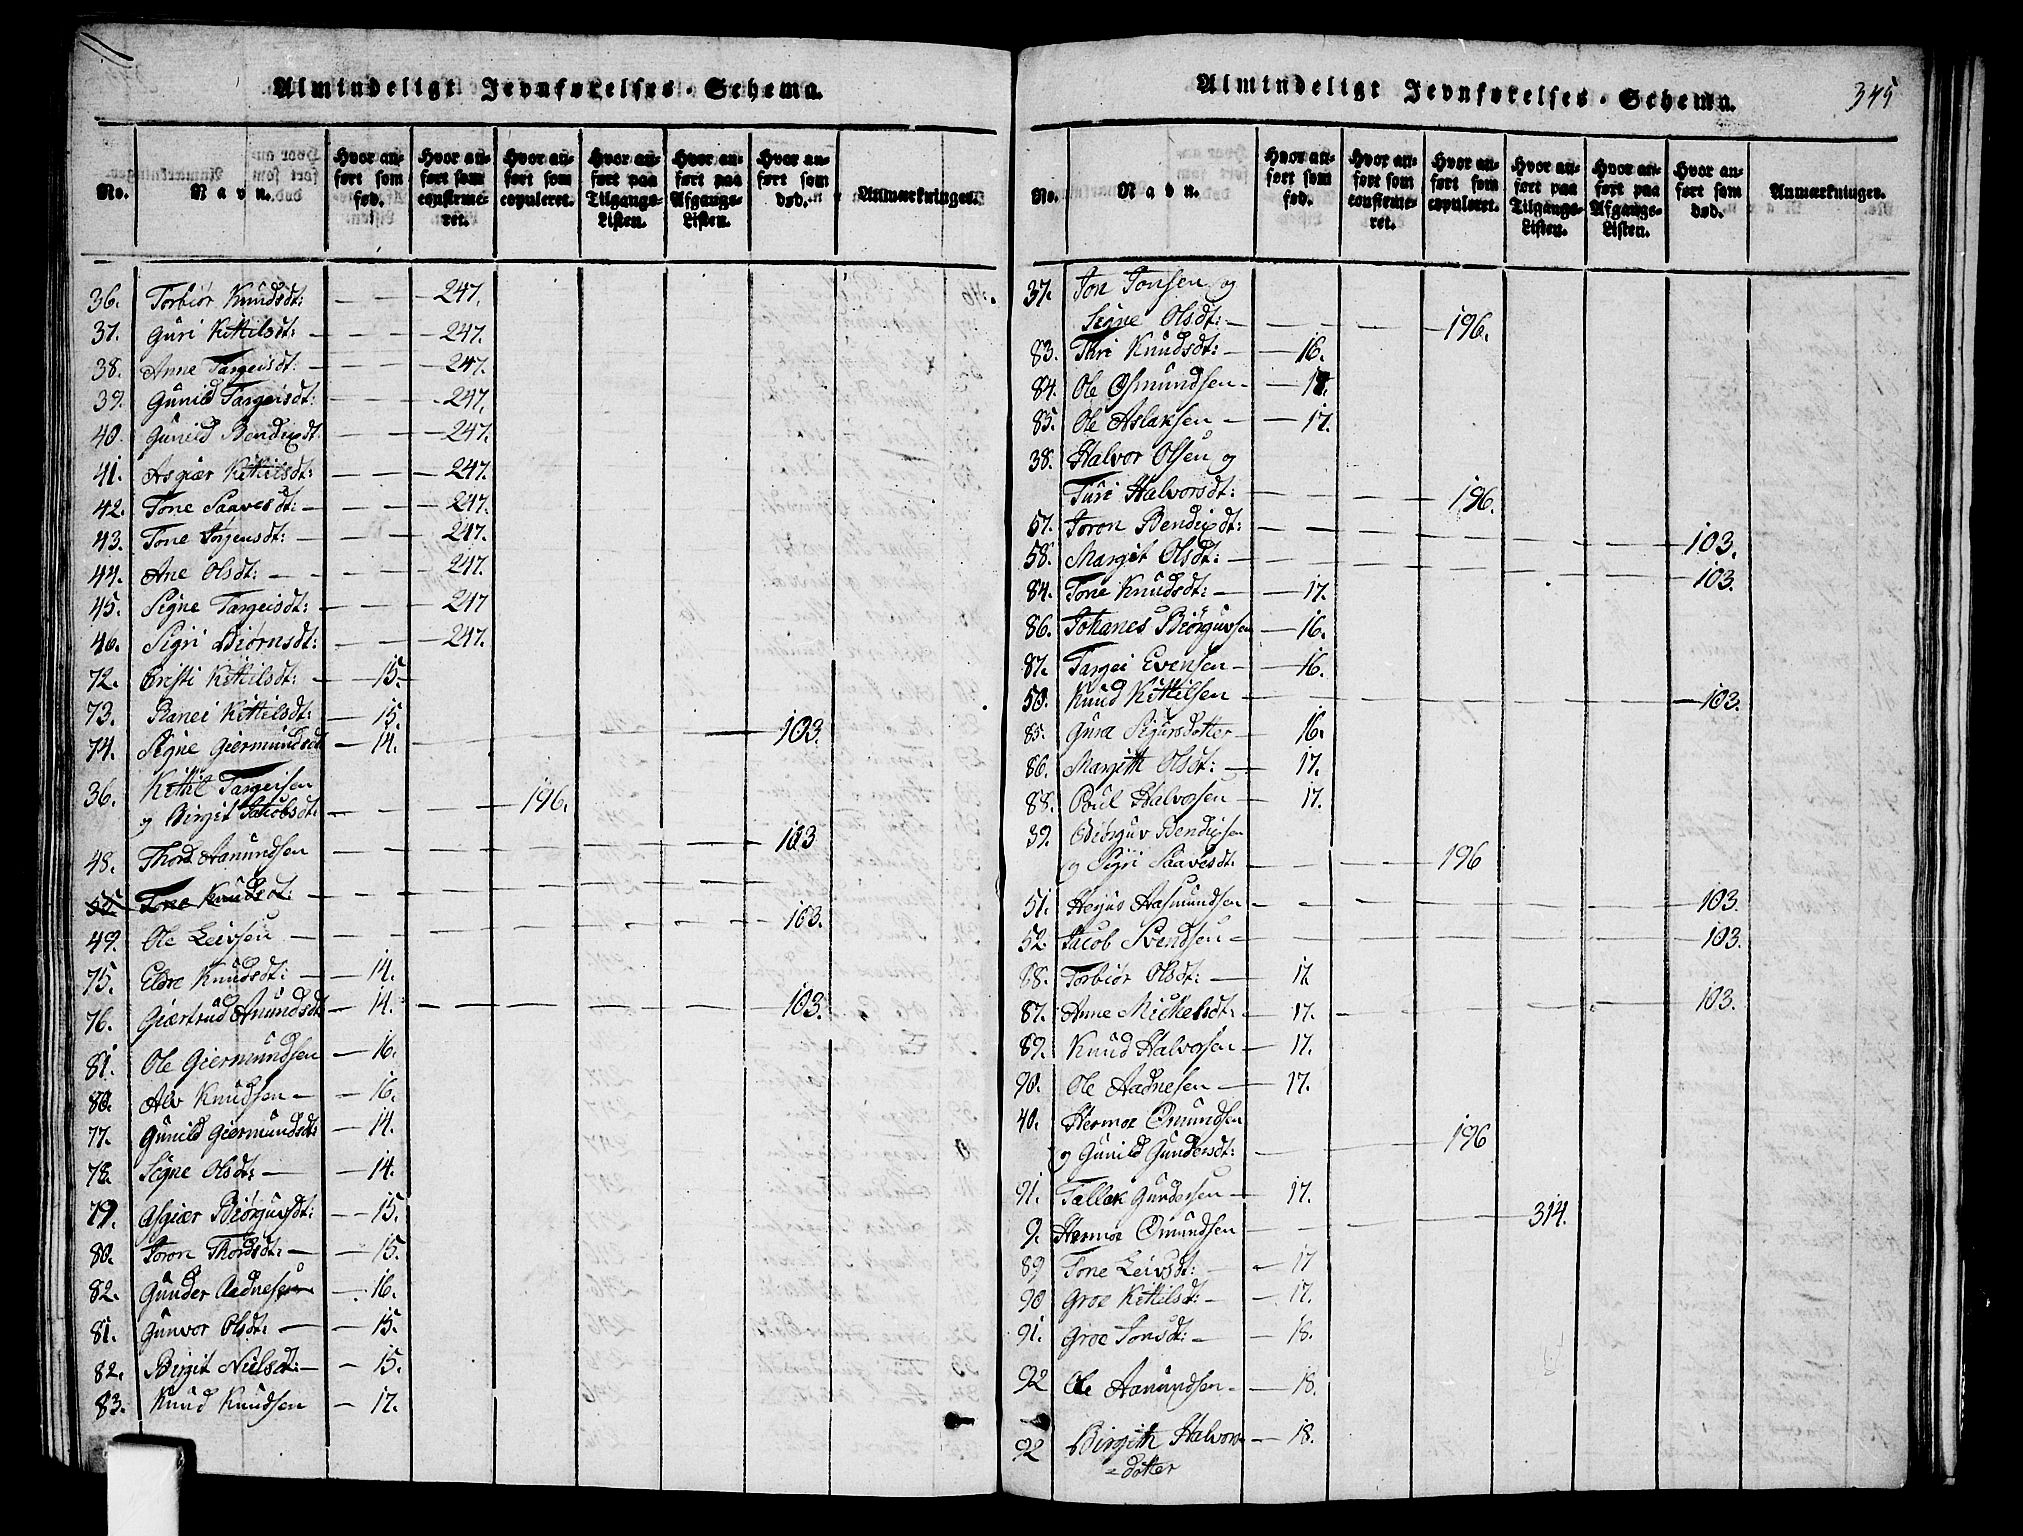 Almindeligt Jevnførelses-Schema.
No.
Navn.
Hvor anført som fød.
Hvor anført som confirmeret.
Hvor anført som copuleret.
Hvor anført paa Tilgangs-Listen.
Hvor anført paa Afgangs-Listen.
Hvor anført som død.
Anmærkninger.
36. Torbiør Knudsdt: — — 247.
37. Guri Kittilsdt: — — 247.
38. Anne Targeisdt: — — 247.
39. Gunild Targeisdt: — — 247.
40. Gunild Bendixdt — — 247.
41. Asgiær Kittilsdt: — — 247.
42. Tone Saavesdt: — — 247.
43. Tone Jørgensdt: — — 247.
44. Ane Olsdt: — — 247.
45. Signe Targeisdt: — — 247
46. Sigri Biørnsdt: — — 247.
72. Cristi Kittilsdt: — 15.
73. Ranei Kittilsdt: — 15.
74. Signe Giermundsdt — 14. — — — — 103.
36. Kittil Targeisen
og Birgit Jacobsdt: — — — 196.
48. Thord Aanundsen — — — — — — 103
50. Tone Knudsdt: —
49. Ole Leivsen — — — — — — 103.
75. Eldre Knudsdt: — 14.
76. Giærtrud Anundsdt — 14. — — — — 103.
81. Ole Giermundsen — 16.
80. Alv Knudsen — 16.
77. Gunild Giermundsdt: — 14.
78. Signe Olsdt: — 14.
79. Asgiær Biørguvsdt: — 15.
80. Joron Thordsdt: — 15.
82. Gunder Aadnesen — 16.
81. Gunvor Olsdt: — 15.
82. Birgit Nielsdt: — 15.
83. Knud Knudsen — 17.
Almindeligt Jevnførelses-Schema.
345
No.
Navn.
Hvor anført som fød.
Hvor anført som confirmeret.
Hvor anført som copuleret.
Hvor anført paa Tilgangs-Listen.
Hvor anført paa Afgangs-Listen.
Hvor anført som død.
Anmærkninger.
37. Jon Jonsen og
Signe Olsdt: — — — 196.
83. Turi Knudsdt: — 16.
84. Ole Osmundsen — 18.
85. Ole Aslaksen — 17.
38. Halvor Olsen og
Turi Halvorsdt: — — — 196.
57. Joron Bendixdt: — — — — — — 103.
58. Margit Olsdt: — — — — — — 103.
84. Tone Knudsdt: — 17.
86. Johanes Biørguvsen — 16.
87. Targei Evensen — 16.
50. Knud Kittilsen — — — — — — 103.
85. Gura Sigursdotter — 16.
86. Margith Olsdt: — 17.
88. Poul Halvorsen — 17.
39. Biørguv Bendixsen
og Sigri Saavesdt: — — — 196
51. Herjus Aasmundsen — — — — — — 103.
52. Jacob Svendsen — — — — — — 103.
88. Torbiør Olsdt: — 17
87. Anne Mickelsdt: — 17. — — — — 103.
89. Knud Halvorsen — 17.
90. Ole Aadnesen — 17.
40. Hermoe Omundsen
og Gunild Gundersdt: — — — 196
91. Tallak Gundersen — 17.
9. Hermoe Omundsen — — — — 314.
89 Tone Leivsdt: — 17
90 Groe Kittilsdt: — 17.
91. Groe Jonsdt: — 18.
92 Ole Aanundsen — 18.
92 Birgith Halvors — 18.
=dotter